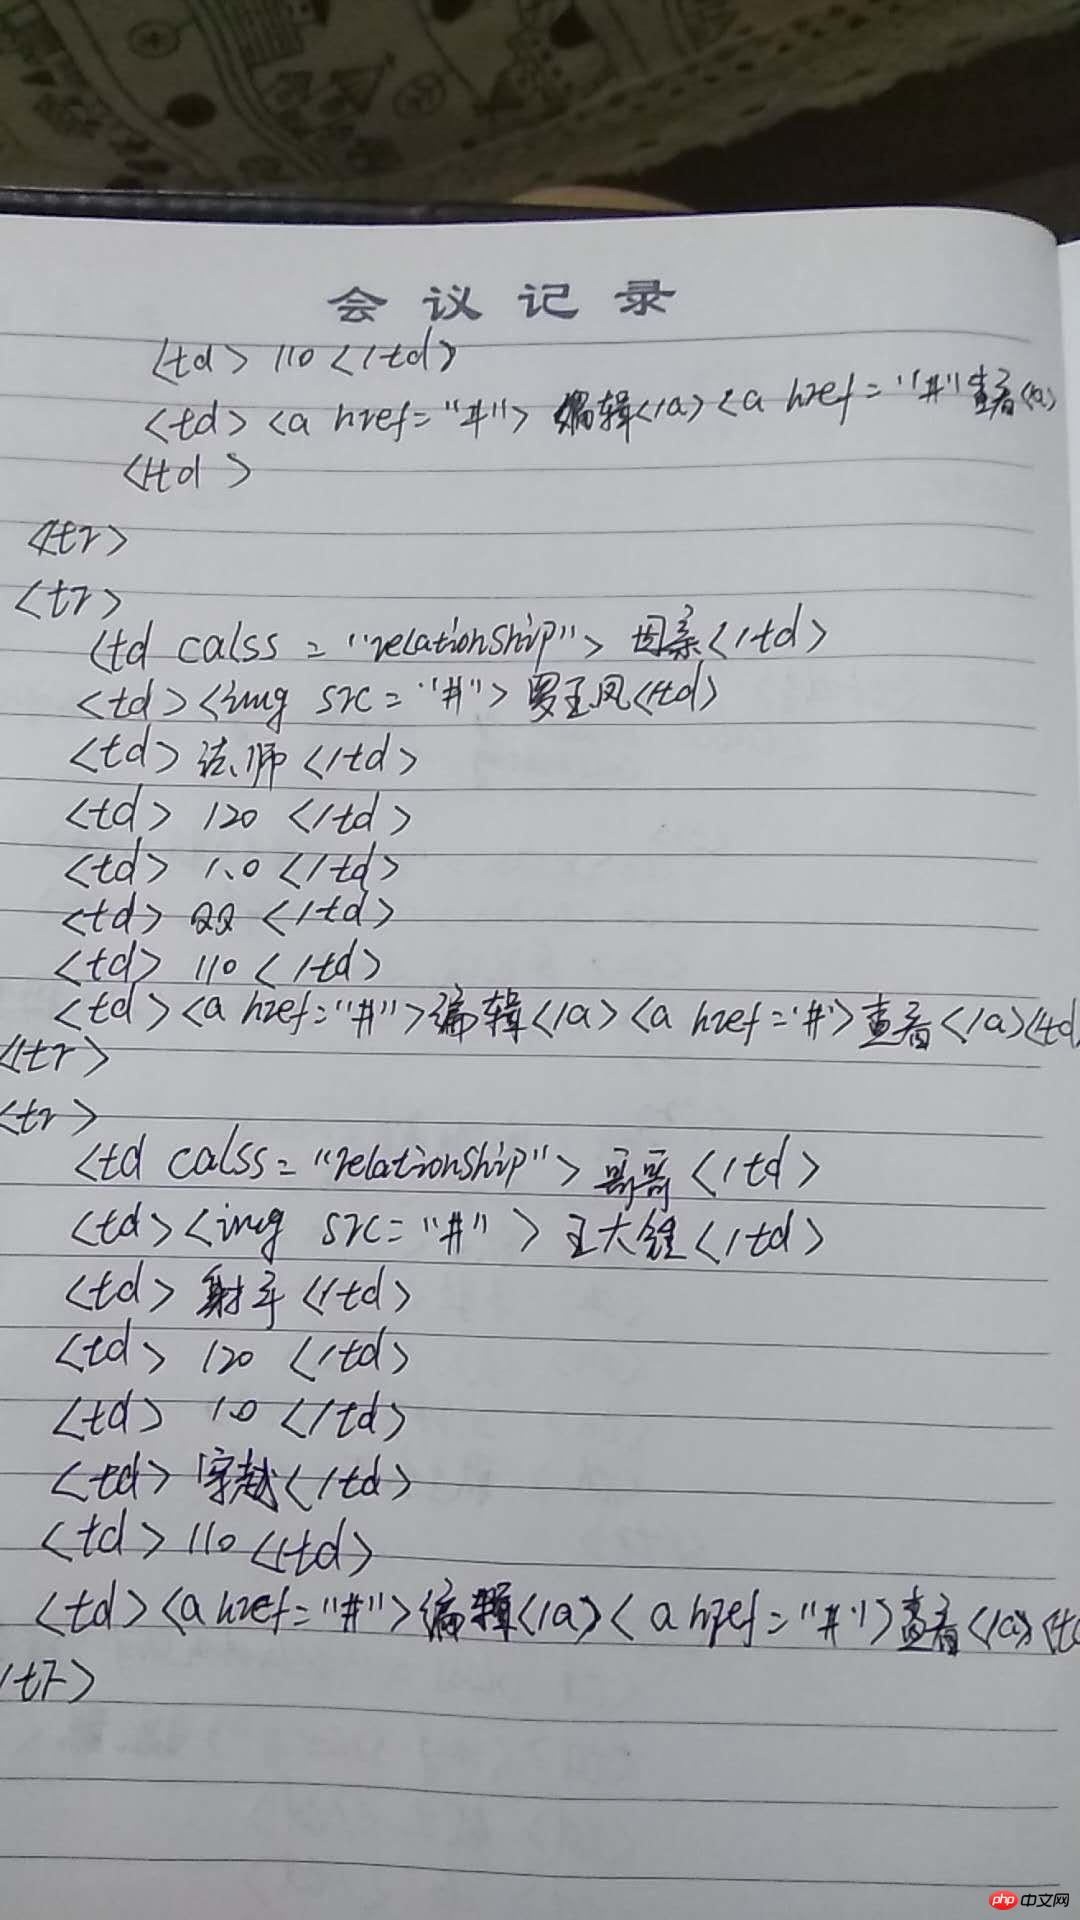 会议记录
<td> 110 </td>
<td> <a href="#"> 编辑</a> <a href="#"查看</a>
</td>
</tr>
<tr>
<td calss="relationship"> 母亲</td>
<td><img src="#"> 罗玉凤</td>
<td> 法师 </td>
<td> 120 </td>
<td> 1.0 </td>
<td> QQ </td>
<td> 110 </td>
<td><a href="#">编辑</a><a href='#'>查看</a></td
</tr>
<tr>
<td calss="relationship"> 哥哥</td>
<td><img src="#"> 王大锤</td>
<td> 射手</td>
<td> 120 </td>
<td> 1.0 </td>
<td> 穿越</td>
<td> 110 </td>
<td><a href="#">编辑</a><a href="#">查看</a></td
/tr>
php中文网